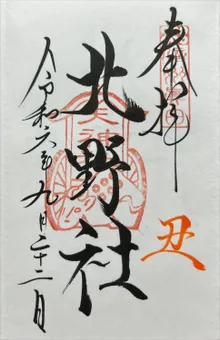 奉拝
丑
北野社
令和六年九月二十二日